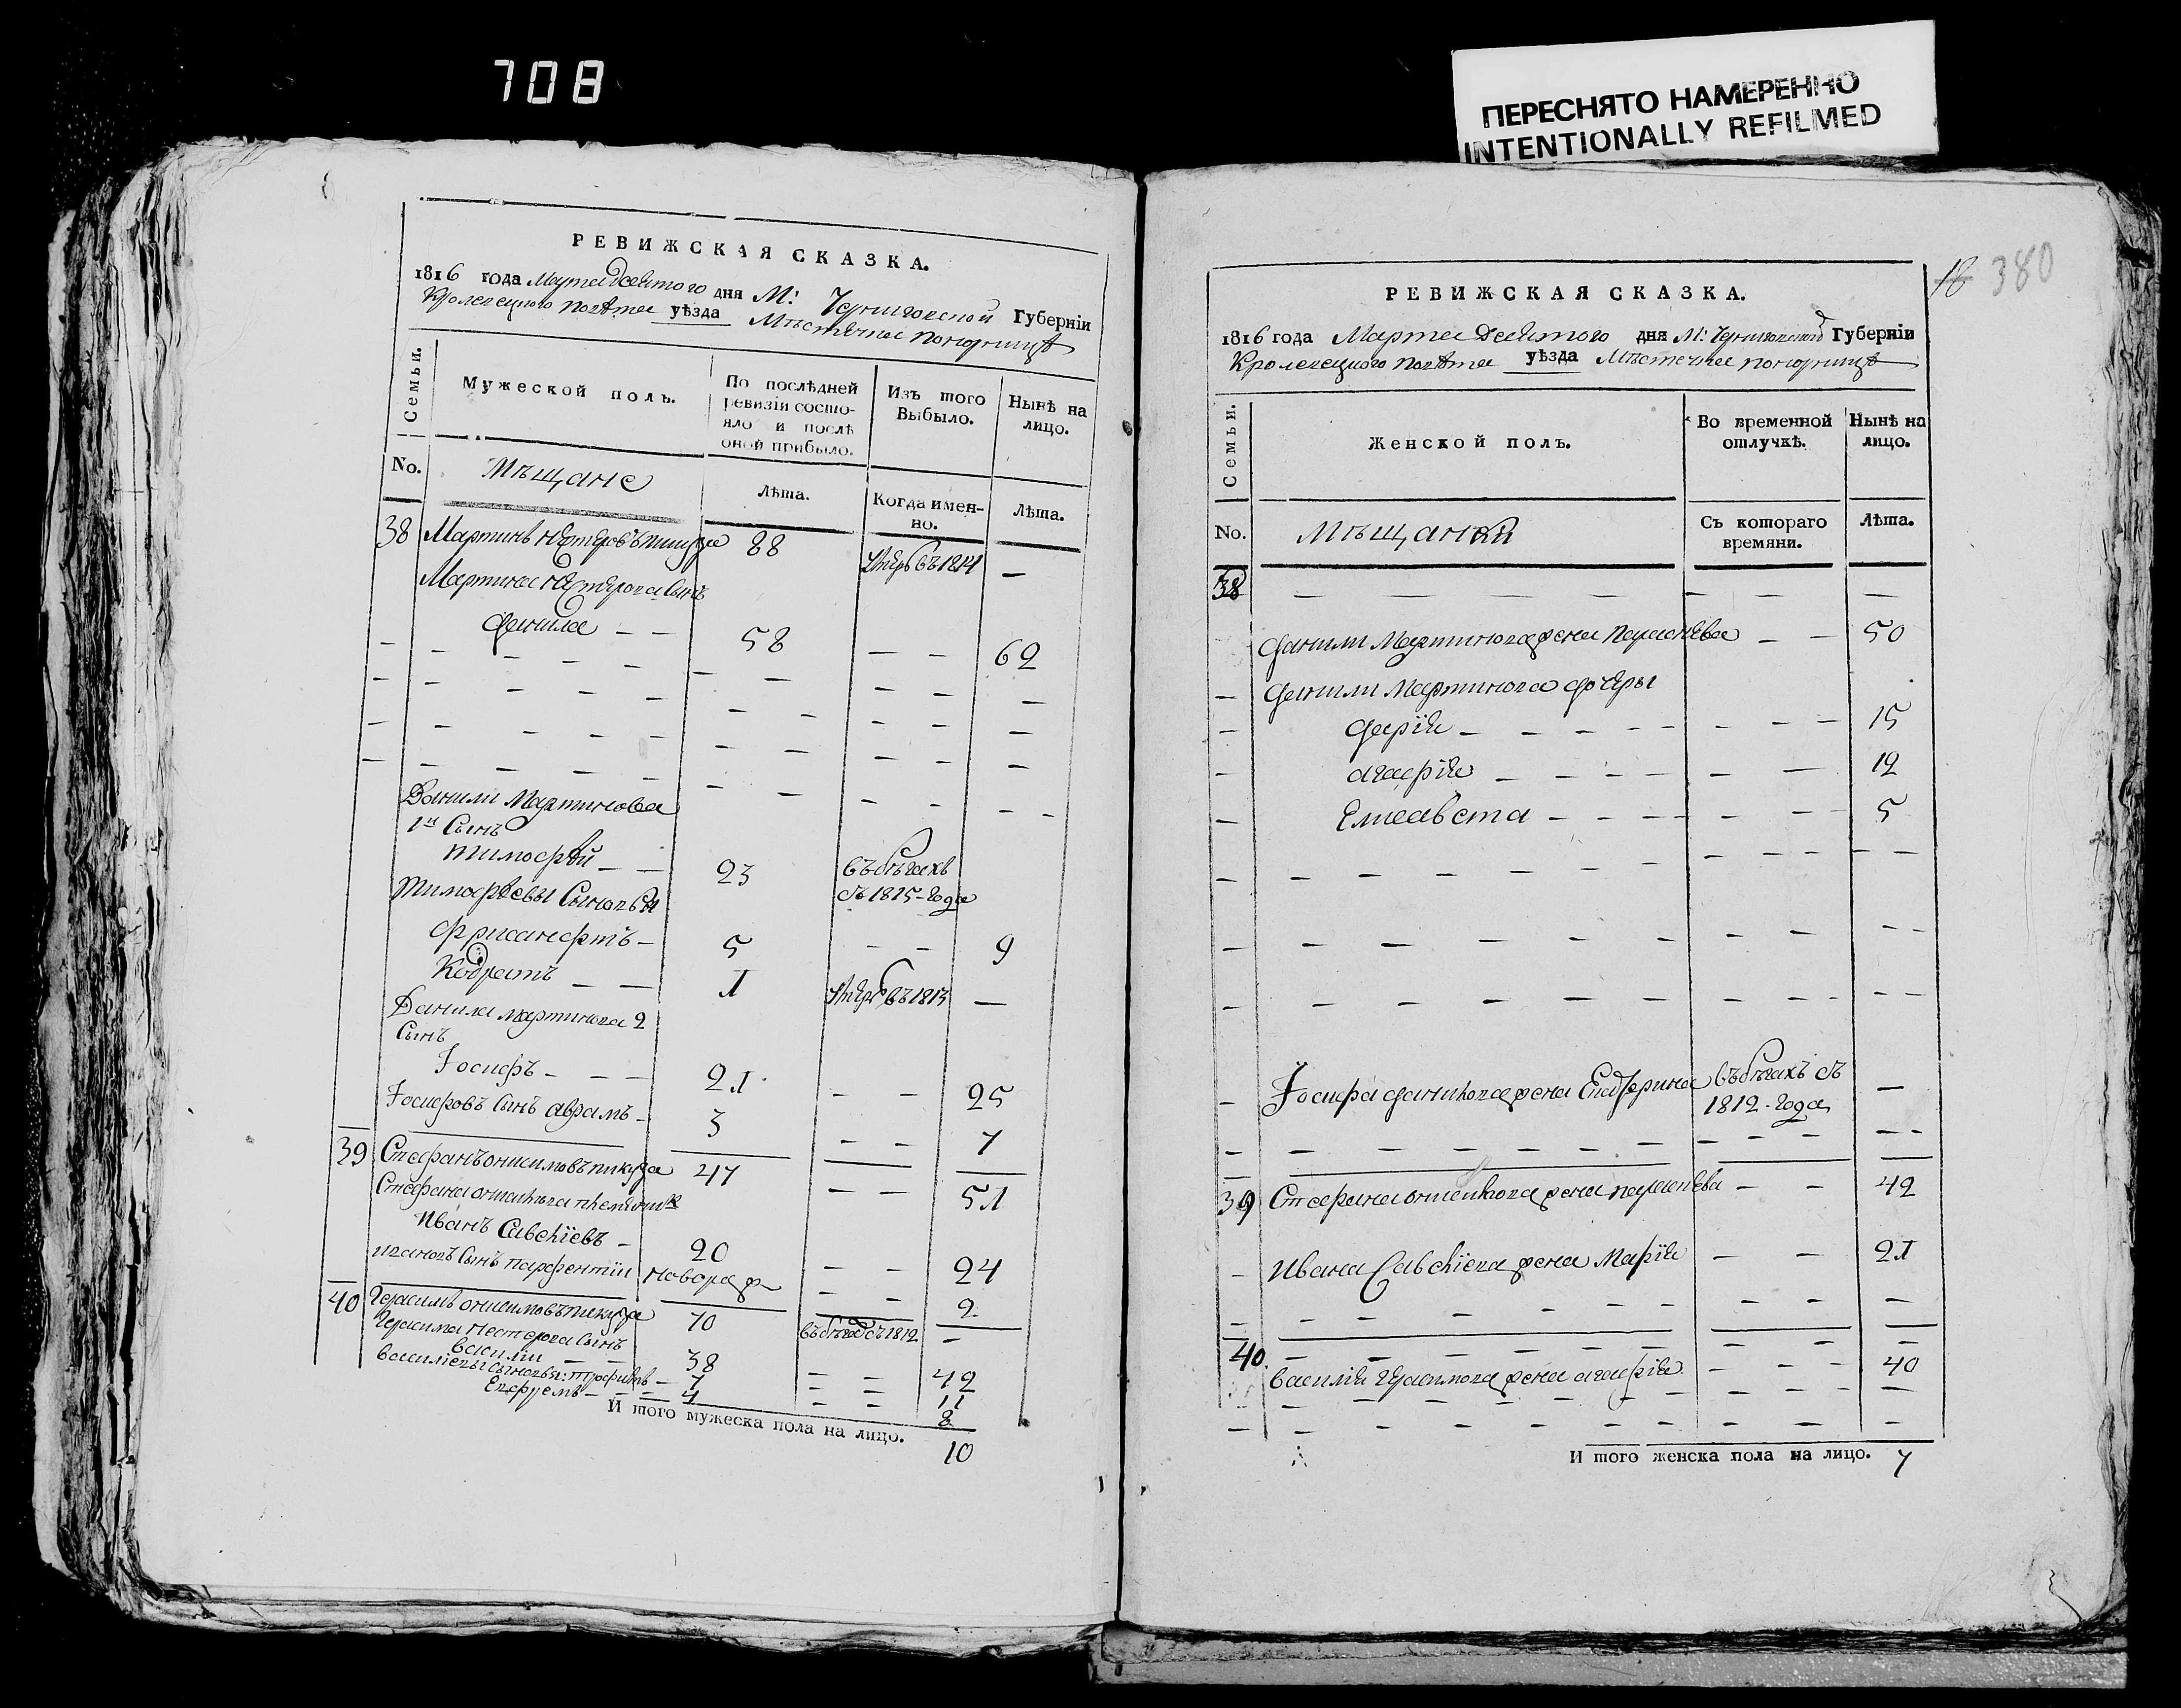 708
ПЕРЕСНЯТО НАМЕРЕННО
INTENTIONALLY REFILMED
РЕВИЖСКАЯ СКАЗКА.
1816 года Марта Десятого дня М: Черниговской Губерніи
Кролевецкого повѣта уѣзда Мѣстечка
Семьи.
Мужеской полъ.
По послѣдней ревизіи состояло и послѣ оной прибыло.
Изъ того Выбыло.
Нынѣ на лицо.
No.
Мѣщане
Лѣта.
Когда именно.
Лѣта.
38 Мартинъ Нестеровъ 88 Умеръ въ 1814 —
Мартина Нестерова Сынъ
Данила — — 58 — — 62
Данили Мартинова
1й Сынъ
Тимофѣй — — 23 въ бѣгахъ
съ 1815 - года
Тимофѣевы Сыновья
— 5 — — 9
Кодратъ — — 1 Умеръ въ 1813 —
Данила Мартинова 2
Сынъ
Іосифъ — — — 21 — — 25
Іосифовъ Сынъ аврамъ — 3 — — 7
39 Стефанъ онисимовъ 47 — — 51
Стефана племянник
Иванъ Савскіевъ — 20 — — 24
ивановъ Сынъ парфентіи новорож — — 2
40 Герасимъ онисимовъ 70 въ бѣгах съ 1812 —
Герасима Сынъ
василіи — — 38 — — 42
василіевы сыновья: трофимъ — 7 — — 11
— — 4 — — 8
И того мужеска пола на лицо. 10
18 380
РЕВИЖСКАЯ СКАЗКА.
1816 года Марта Десятого дня М: Черниговской Губерніи
Кролевецкого повѣта уѣзда Мѣстечка
Семьи.
Женской полъ.
Во временной отлучкѣ.
Нынѣ на лицо.
No.
Мѣщанки
Съ котораго времяни.
Лѣта.
38
Данили Мартинова жена — — 50
Данили Мартинова дочеры
дарія — 15
агафія — 12
Елисавета — 5
Іосифа данилова жена Екатерина въ бѣгахъ съ —
1812 - года
39 Стефана жена — — 42
Ивана Савскіева жена Марія — — 21
40.
василія Герасимова жена агафія — 40
И того женска пола на лицо. 7